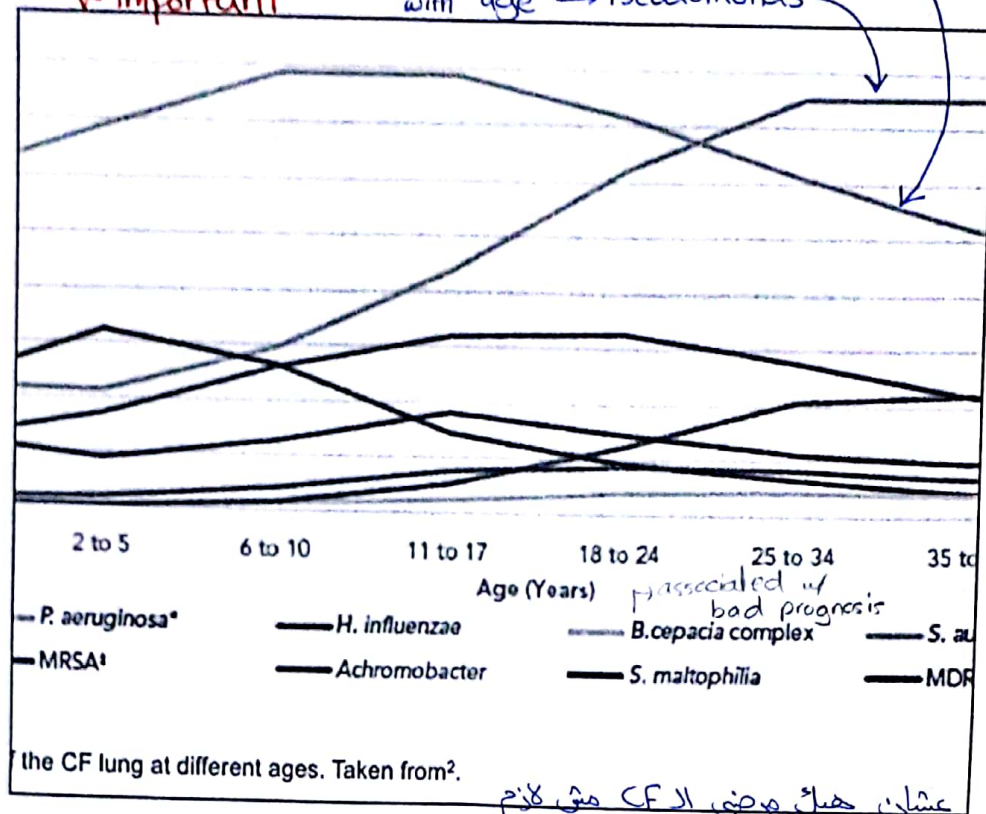 V. important
with age → Pseudomonas
2 to 5 6 to 10 11 to 17 18 to 24 25 to 34 35 to
Age (Years)
associated w/
bad prognosis
P. aeruginosa* H. influenzae B.cepacia complex S. au
MRSA‡ Achromobacter S. maltophilia MDR
the CF lung at different ages. Taken from².
عشان هيك مرضى ال CF مش لازم